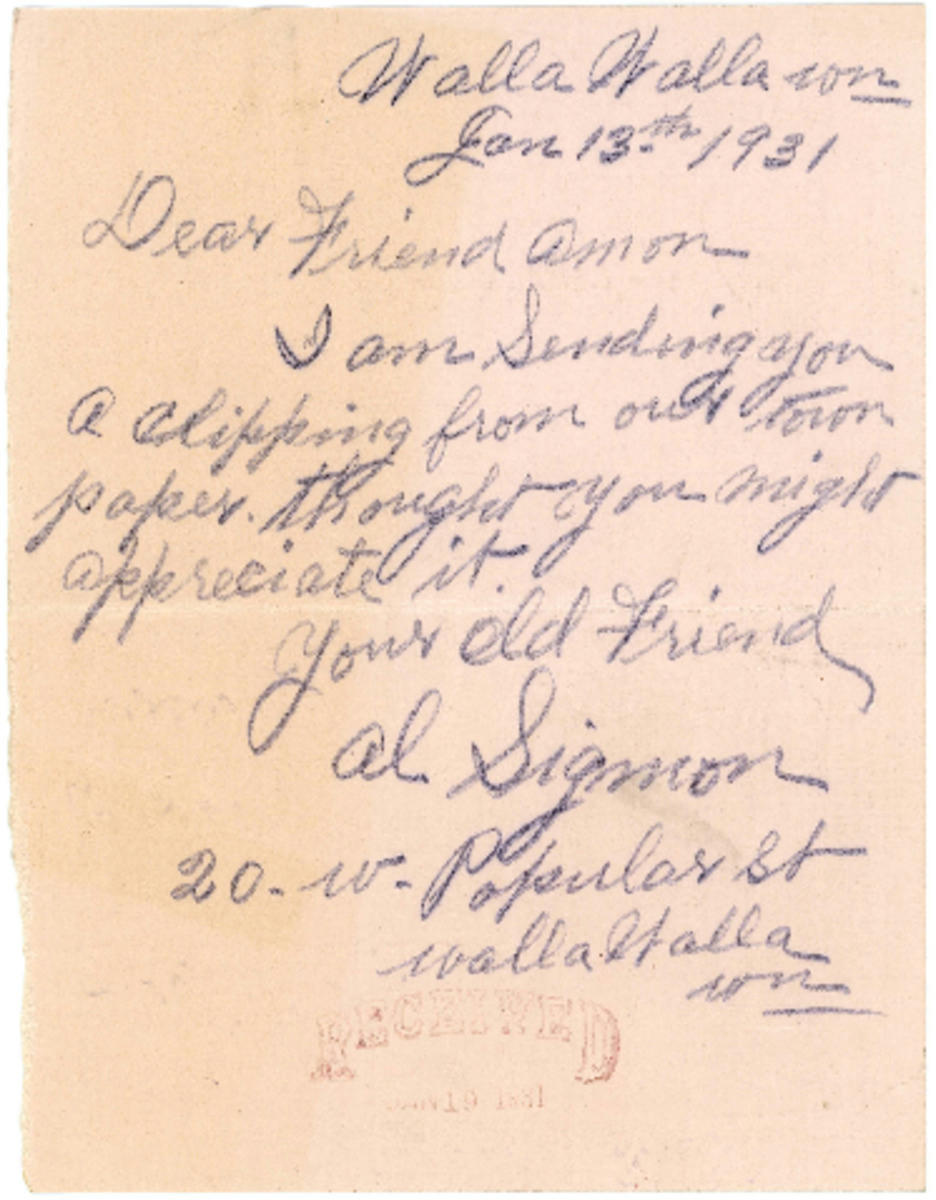 Walla Walla wn
Jan 13th 1931
Dear Friend Amon
I am Sending you
a clipping from our town
paper. thought you might
appreciate it.
your old Friend
Al Sigmon
20 - W - Popular St
Walla Walla
wn
RECEIVED
JAN 19 1931